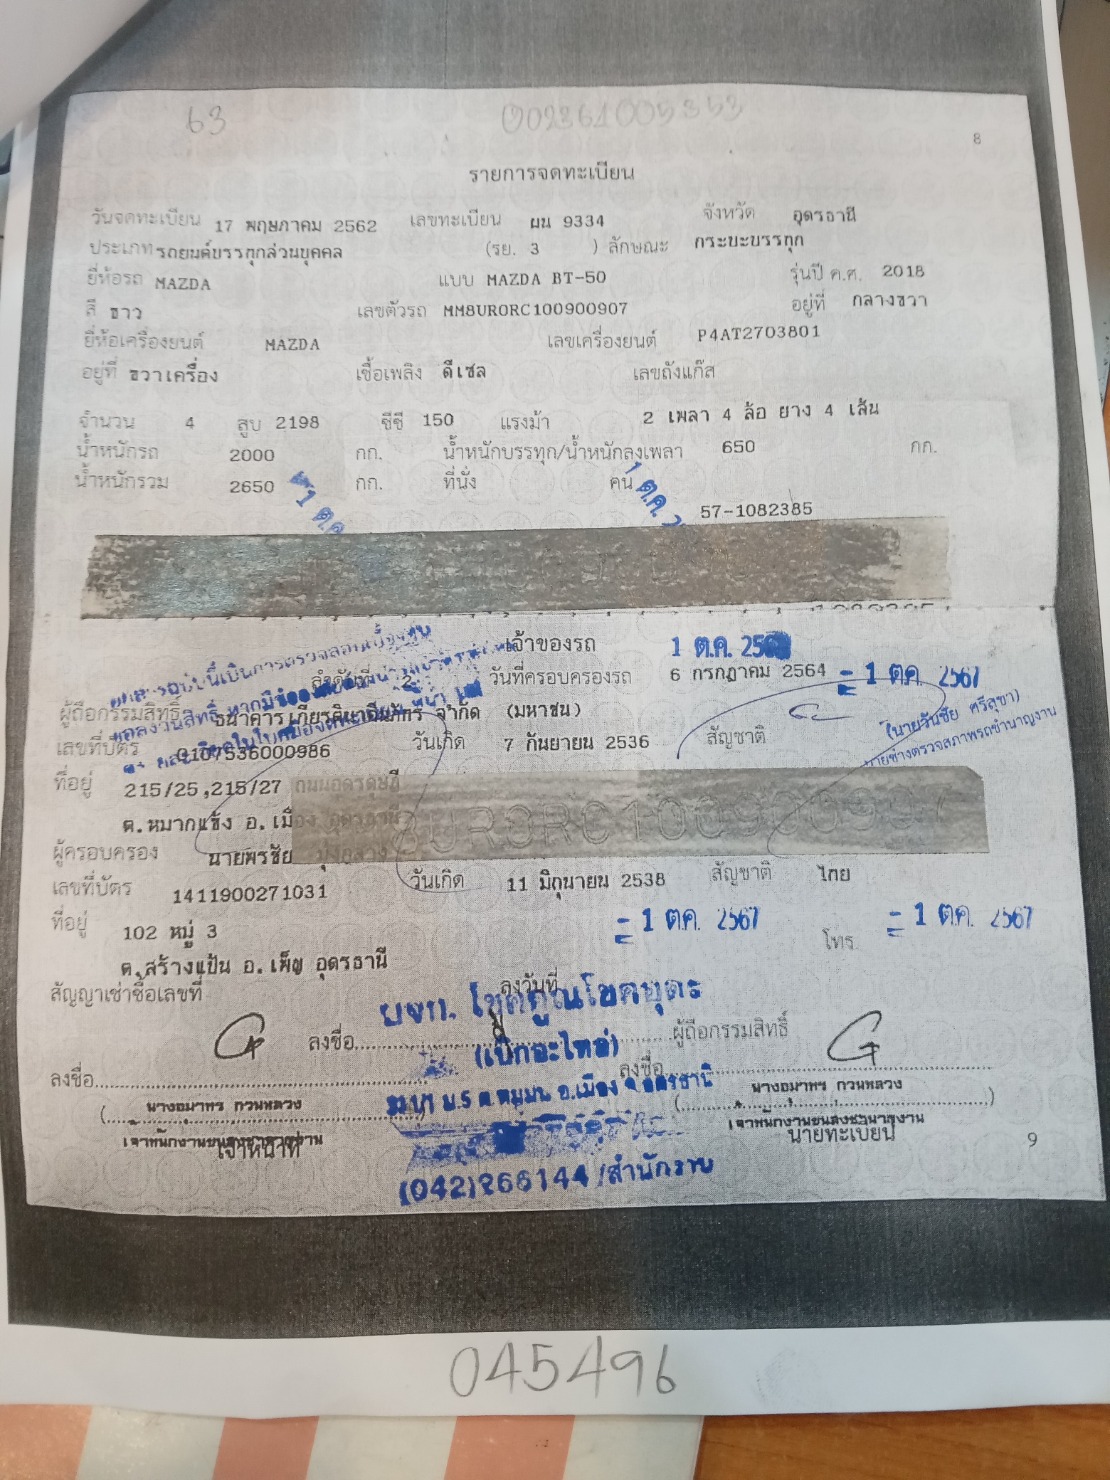 63 002361005353
8
รายการจดทะเบียน
วันจดทะเบียน 17 พฤษภาคม 2562 เลขทะเบียน ผน 9334 จังหวัด อุดรธานี
ประเภท รถยนต์บรรทุกส่วนบุคคล (รย. 3 ) ลักษณะ กระบะบรรทุก
ยี่ห้อรถ MAZDA แบบ MAZDA BT-50 รุ่นปี ค.ศ. 2018
สี ขาว เลขตัวรถ MM8UR0RC100900907 อยู่ที่ กลางขวา
ยี่ห้อเครื่องยนต์ MAZDA เลขเครื่องยนต์ P4AT2703801
อยู่ที่ ขวาเครื่อง เชื้อเพลิง ดีเซล เลขถังแก๊ส
จำนวน 4 สูบ 2198 ซีซี 150 แรงม้า 2 เพลา 4 ล้อ ยาง 4 เส้น
น้ำหนักรถ 2000 กก. น้ำหนักบรรทุก/น้ำหนักลงเพลา 650 กก.
น้ำหนักรวม 2650 กก. ที่นั่ง คน
1 ต.ค. 1 ต.ค.
57-1082385
เจ้าของรถ 1 ต.ค. 256
ลำดับที่ 2 วันที่ครอบครองรถ 6 กรกฎาคม 2564 - 1 ต.ค. 2567
ผู้ถือกรรมสิทธิ์ ธนาคารเกียรตินาคินภัทร จำกัด (มหาชน) (นายวันชัย ศรีสุขา)
เลขที่บัตร 0107536000986 วันเกิด 7 กันยายน 2536 สัญชาติ นายช่างตรวจสภาพรถชำนาญงาน
ที่อยู่ 215/25,215/27 ถนนอุดรดุษฎี
ต.หมากแข้ง อ.เมือง อุดรธานี UR0RC100900907
ผู้ครอบครอง นายพรชัย
เลขที่บัตร 1411900271031 วันเกิด 11 มิถุนายน 2538 สัญชาติ ไทย
ที่อยู่ 102 หมู่ 3 - 1 ต.ค. 2567 โทร. - 1 ต.ค. 2567
ต.สร้างแป้น อ.เพ็ญ อุดรธานี
สัญญาเช่าซื้อเลขที่ ลงวันที่
บจก. โชคคูณโชคบุตร
ลงชื่อ ผู้ถือกรรมสิทธิ์
(เป็กอะไหล่)
ลงชื่อ ลงชื่อ
ม.5 อ.เมือง จ.อุดรธานี
(นางอุมาพร กวนหลวง) (นางอุมาพร กวนหลวง)
เจ้าพนักงานขนส่งชำนาญงาน เจ้าพนักงานขนส่งชำนาญงาน
เจ้าหน้าที่ นายทะเบียน
9
(042)266144/สำนักงาน
045496